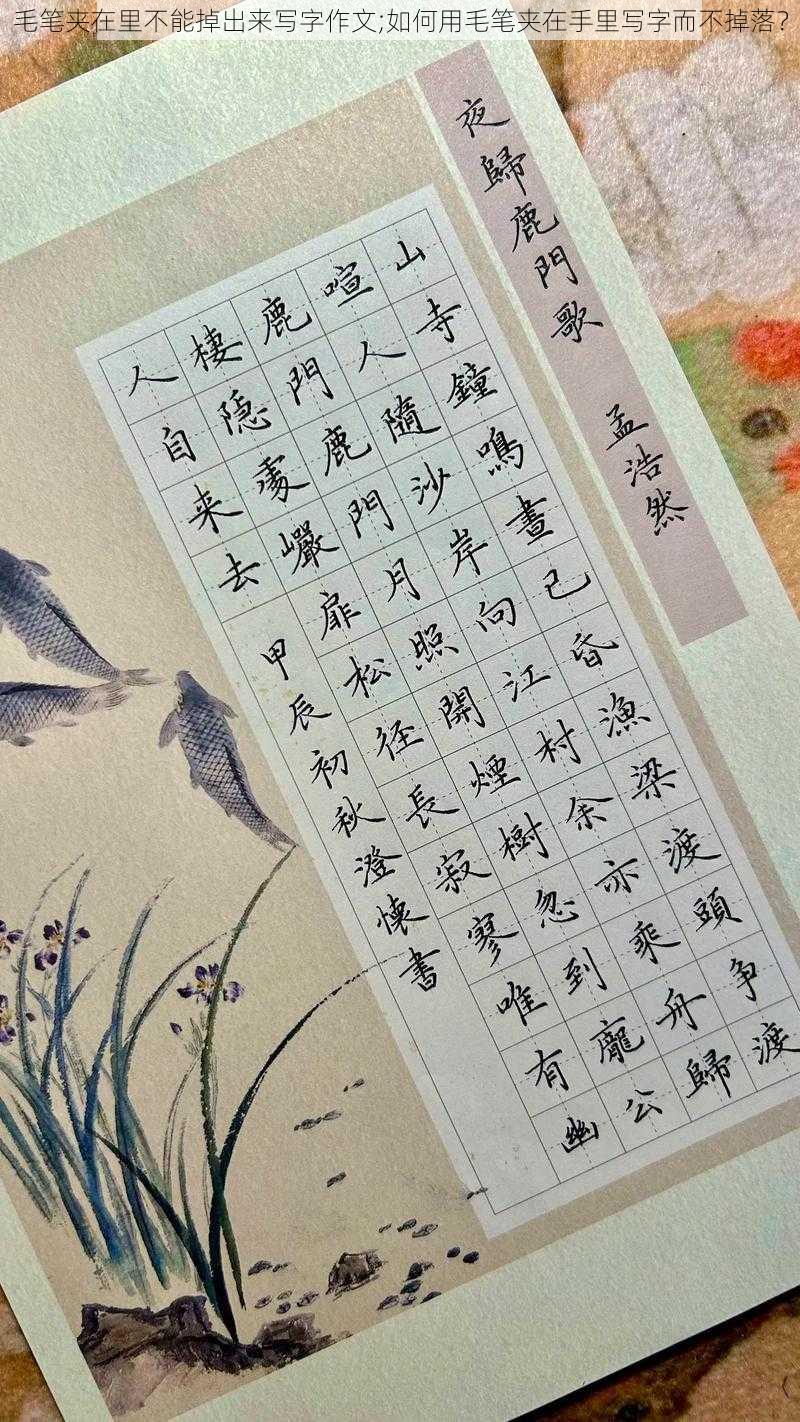 毛笔夹在里不能掉出来写字作文;如何用毛笔夹在手里写字而不掉落？
夜歸鹿門歌 孟浩然
山寺鐘鳴晝已昏漁梁渡頭争渡
喧人隨沙岸向江村余亦乘舟歸
鹿門鹿門月照開煙樹忽到龐公
棲隐處巖扉松径長寂寥唯有幽
人自来去
甲辰初秋澄懐書